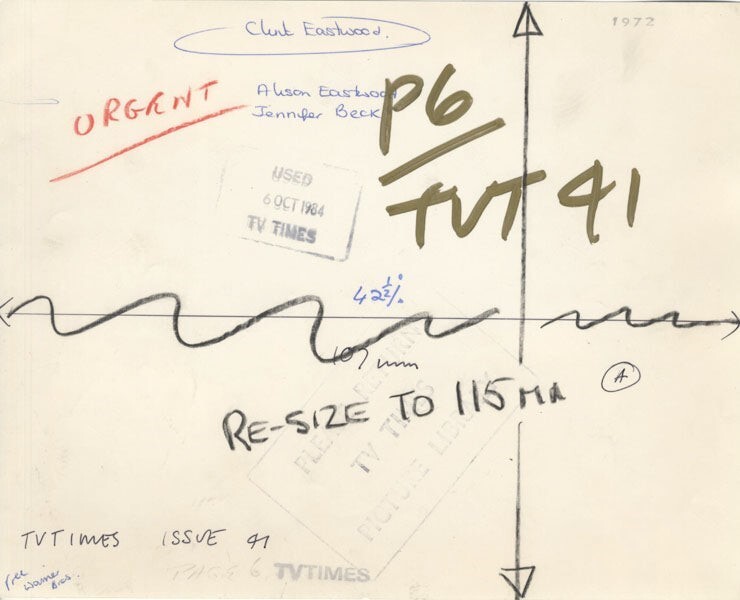 Clint Eastwood.
1972
URGENT
Alison Eastwood
Jennifer Beck
P6
TVT 41
USED
6 OCT 1984
TV TIMES
42½%
107mm
A
RE-SIZE TO 115MM
PLEASE RETURN
TV TIMES
PICTURE LIBRARY
TVTIMES ISSUE 41
free
Warner
Bros.
PAGE 6
TVTIMES